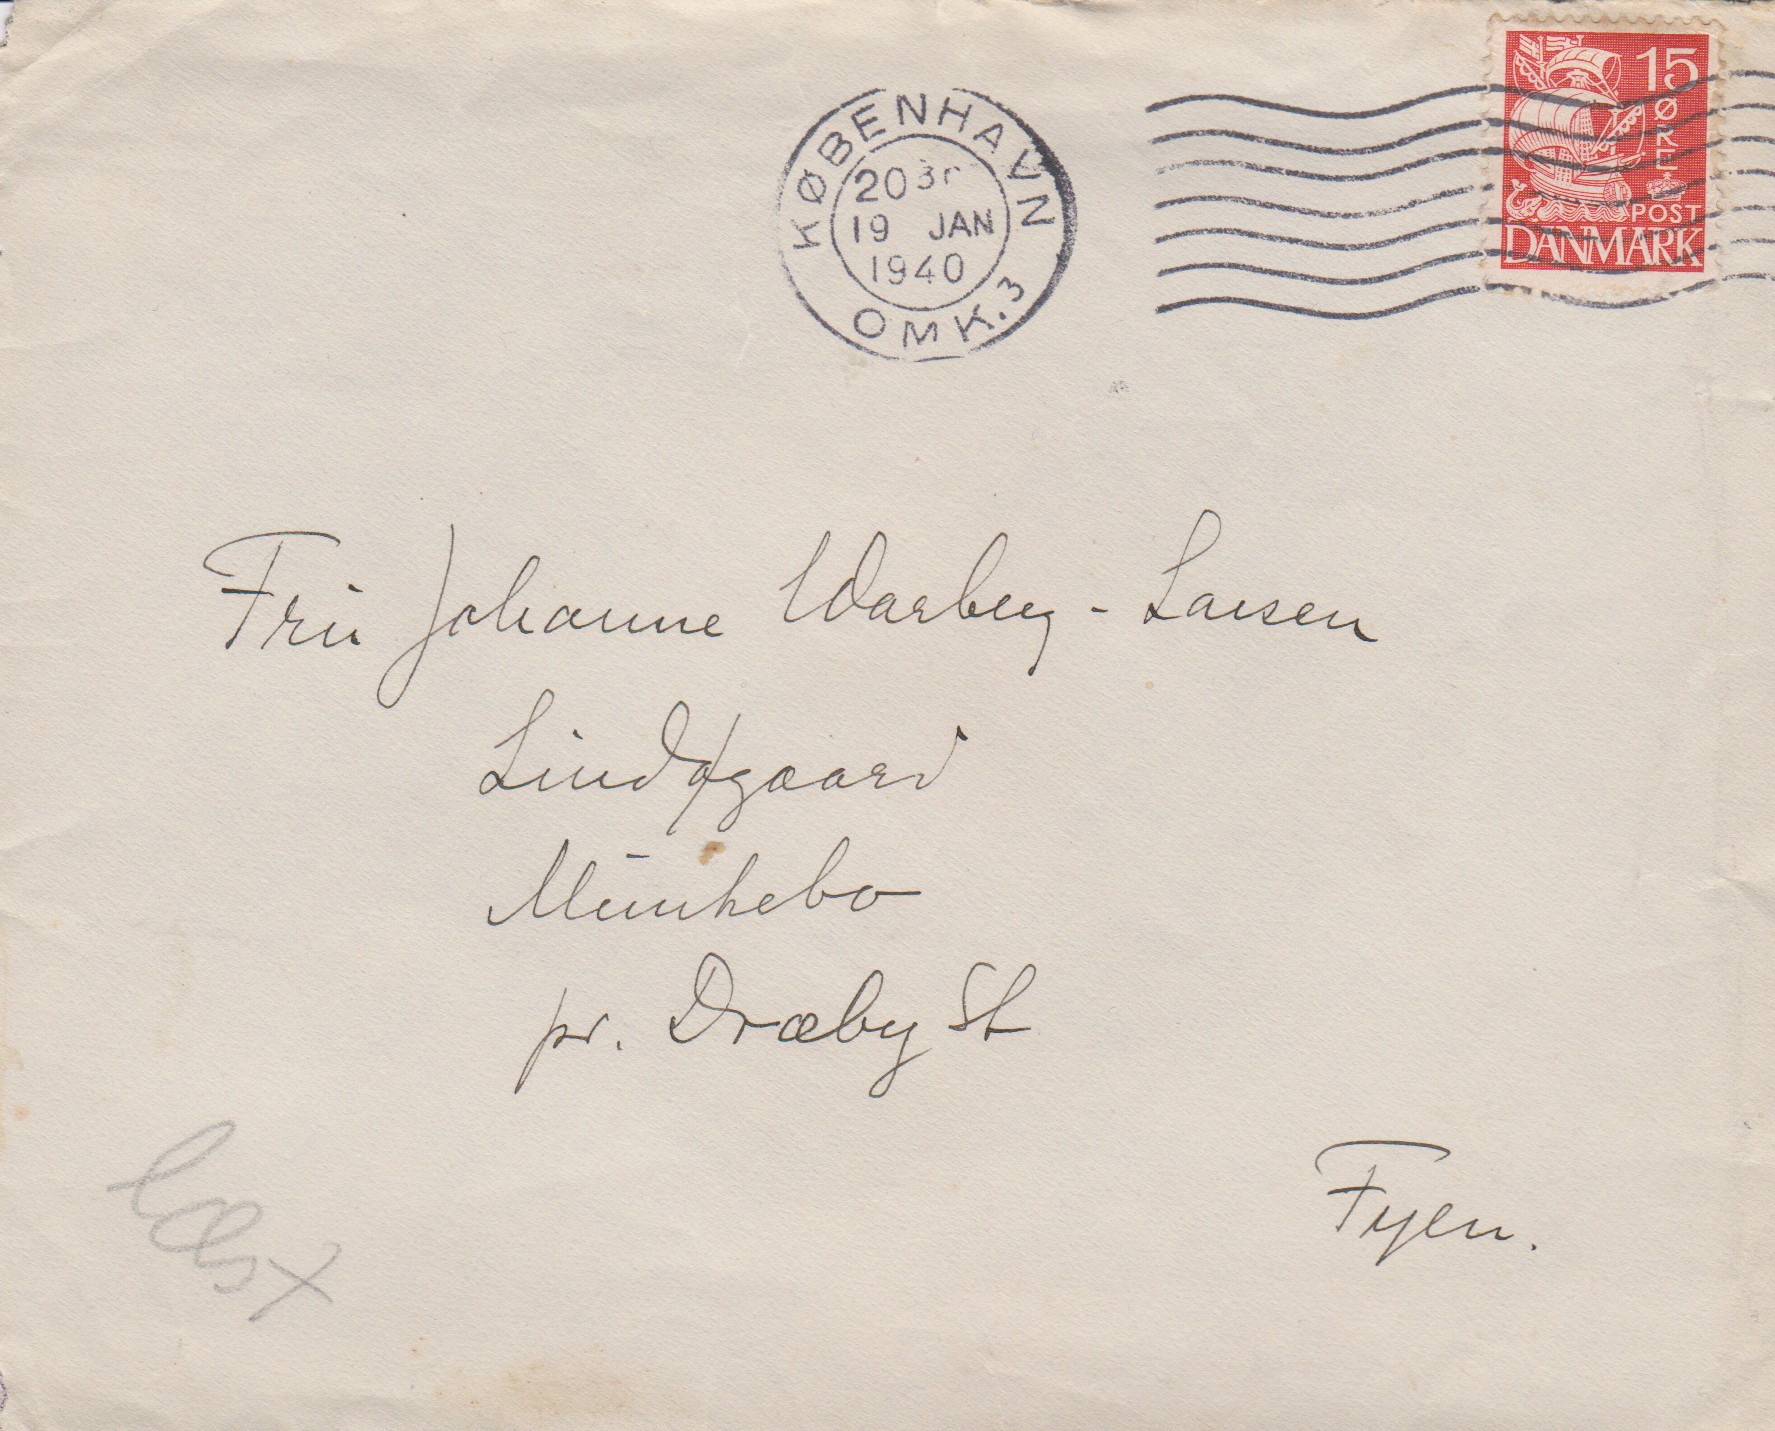 KØBENHAVN
20 3
19 JAN
1940
OMK. 3
15
ØRE
POST
DANMARK
Frū Johanne Warberg-Larsen
Lindøgaard
Mūnkebo
pr. Dræby St
Fyen.
Læst